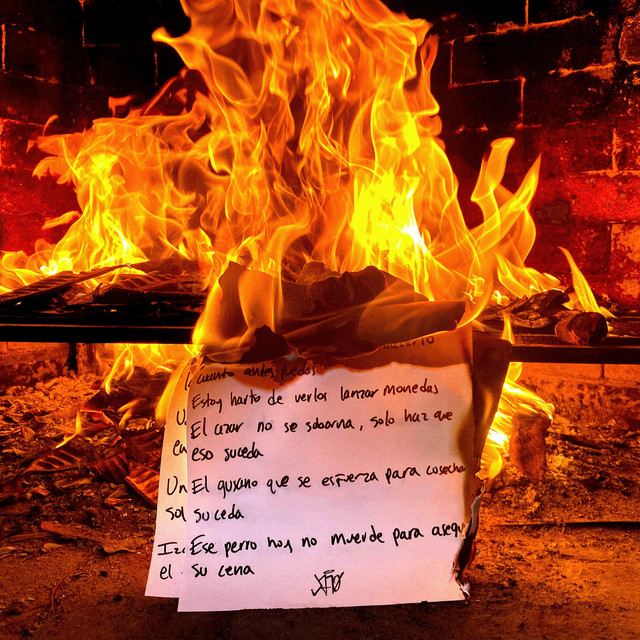 Cuanto antes puedas
Estoy harto de verlos lanzar monedas
El azar no se soborna, solo haz que
eso suceda
El gusano que se esfuerza para cosecha
suceda
Ese perro hoy no muerde para asegu
su cena
U
en
Un
sol
Iz
el